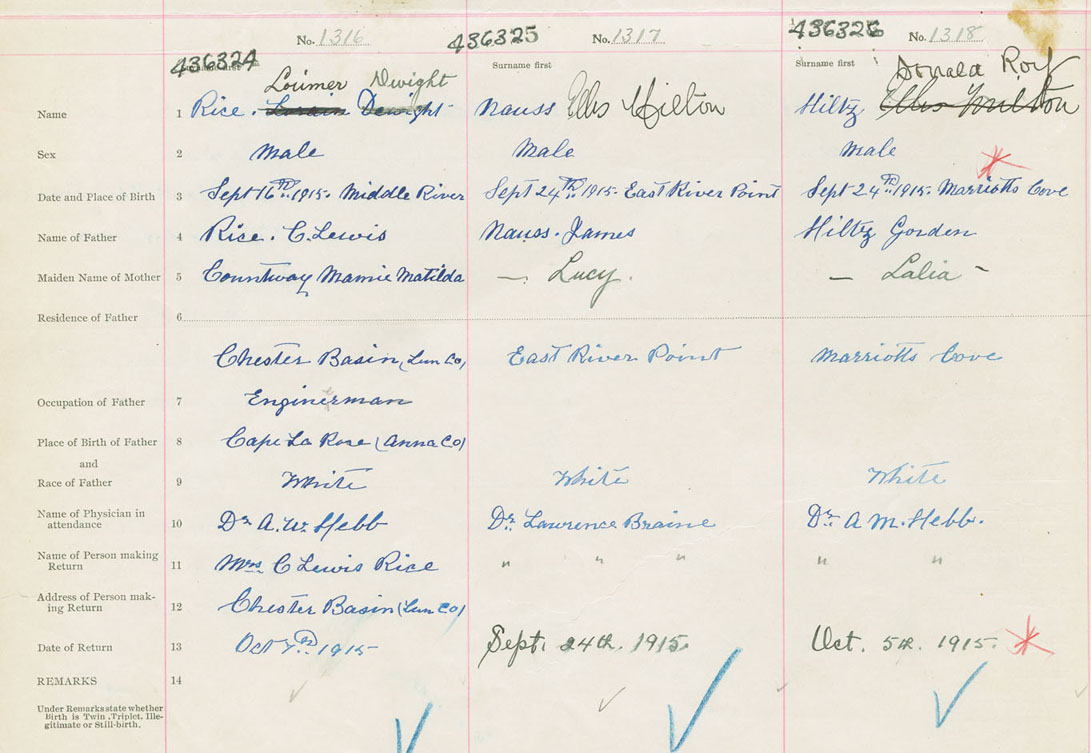 436324 No. 1316 436325 No. 1317 436326 No. 1318
Surname first Surname first
Lorimer Dwight Donald Roy
Name 1 Rice. Dewight Nauss Ellis Hilton Hiltz Ellis
Sex 2 Male Male Male
Date and Place of Birth 3 Sept 16TH 1915. Middle River Sept 24TH 1915. East River Point Sept 24TH 1915. Marriotts Cove
Name of Father 4 Rice. C. Lewis Nauss. James Hiltz Gorden
Maiden Name of Mother 5 Countway Mamie Matilda — Lucy. — Lalia -
Residence of Father 6
Chester Basin (Lun Co) East River Point Marriotts Cove
Occupation of Father 7 Enginerman
Place of Birth of Father 8 Cape La Rose (Anna Co)
and
Race of Father 9 White White White
Name of Physician in
attendance 10 Dr. A. W. Hebb Dr. Lawrence Braine Dr. A M. Hebb.
Name of Person making
Return 11 Mrs C Lewis Rice " " " " "
Address of Person mak-
ing Return 12 Chester Basin (Lun Co)
Date of Return 13 Oct 1915 Sept. 24th. 1915. Oct. 5th. 1915.
REMARKS 14
Under Remarks state whether
Birth is Twin, Triplet, Ille-
gitimate or Still-birth.